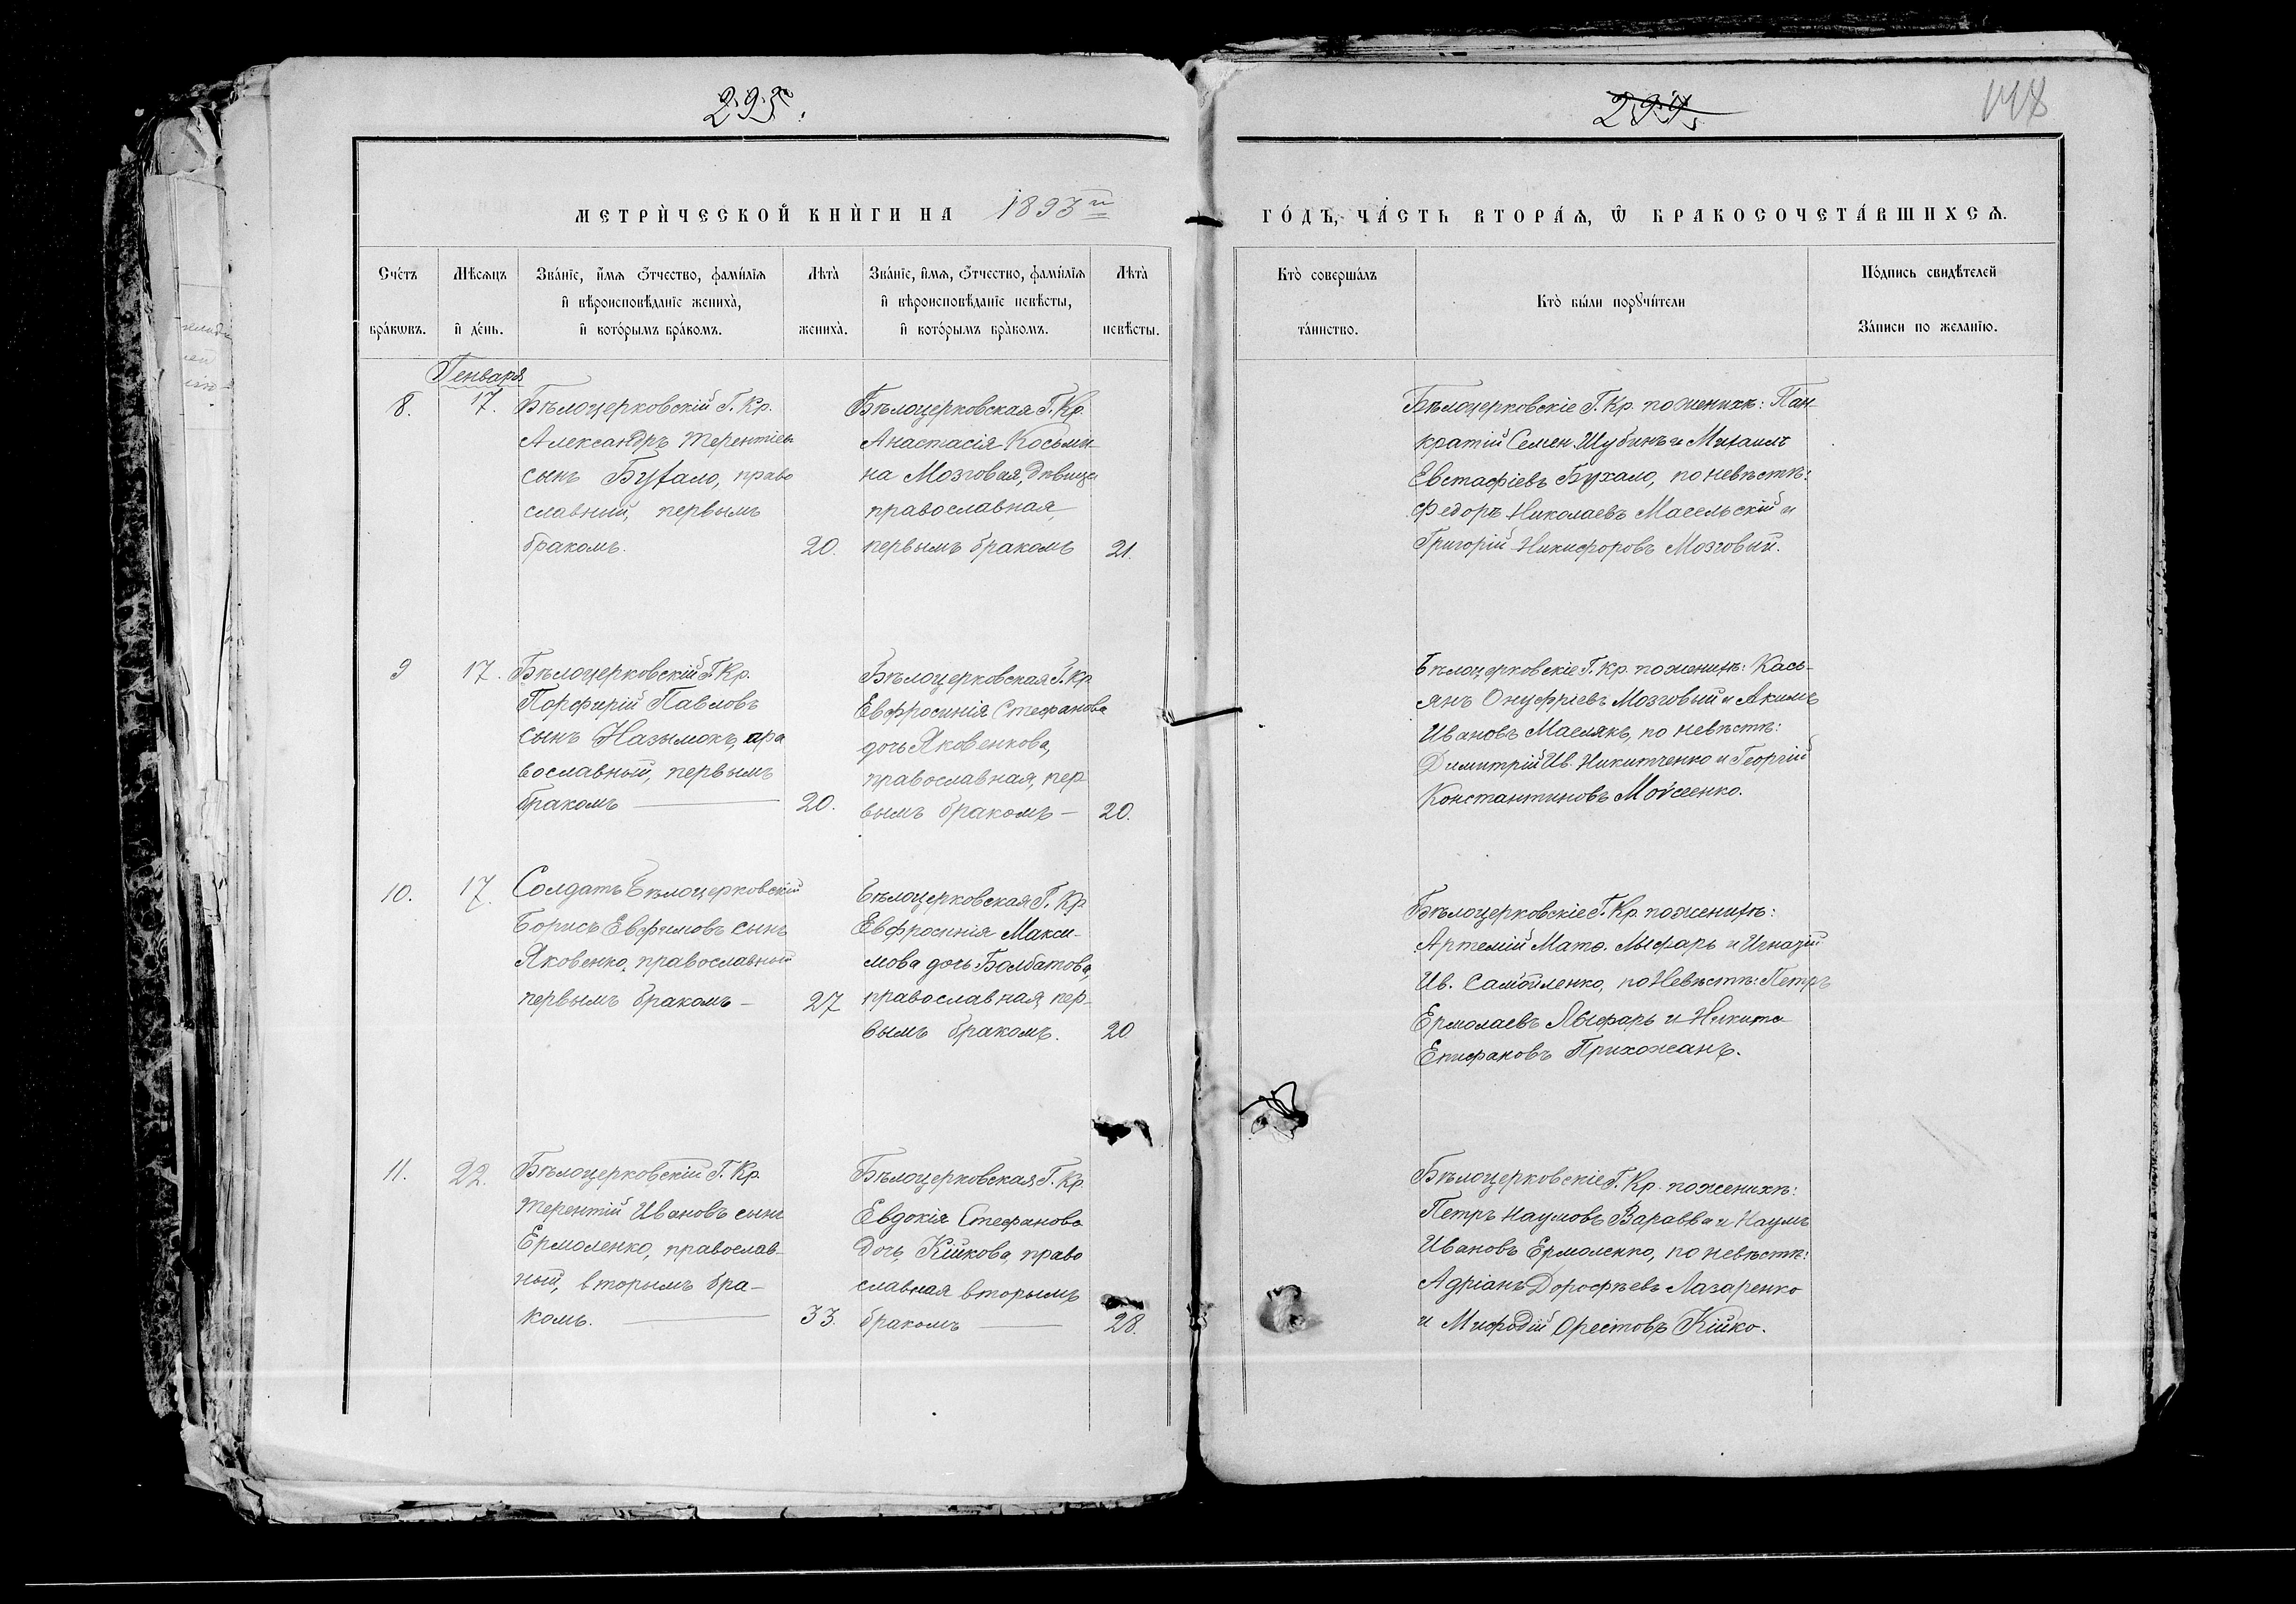 МЕТРИ́ЧЕСКОЙ КНИ́ГИ НА 1893й
ГО́ДЪ, ЧА́СТЬ ВТОРА́Ѧ, Ѿ БРАКОСОЧЕТА́ВШИХСѦ.
Сче́тъ
бра́кѡвъ.
Мѣсѧцъ
и҆ де́нь.
Зва́нїе, и҆́мѧ ѻ҆́тчество, фами́лїѧ
и҆ вѣроисповѣ́данїе жениха̀,
и҆ кото́рымъ бра́комъ.
Лѣта̀
жениха̀.
Зва́нїе, и҆́мѧ, ѻ҆́тчество, фами́лїѧ
и҆ вѣроисповѣ́данїе невѣ́сты,
и҆ кото́рымъ бра́комъ.
Лѣта̀
невѣ́сты.
Кто̀ соверша́лъ
та́инство.
Кто̀ бы́ли порꙋчи́тели
По́дпись свидѣ́телей
За́писи по жела́нїю.
Генваря
8.
17.
Бѣлоцерковскій Г. Кр.
Александръ Терентіевъ
сынъ Бухало, право
славный, первымъ
бракомъ.
20.
Бѣлоцерковская Г. Кр.
Анастасія Косьми-
на Мозговая, дѣвица
православная,
первымъ бракомъ
21.
Бѣлоцерковскіе Г. Кр. по женихѣ: Пан-
кратій Семен. Шубинъ и Михаилъ
Евстафіевъ Бухало, по невѣстѣ:
Федоръ Николаевъ Масельскій и
Григорій Никифоровъ Мозговый.
9
17.
Бѣлоцерковскій Г. Кр.
Порфирій Павловъ
сынъ Назымокъ, пра
вославный, первымъ
бракомъ —
20.
Бѣлоцерковская Г. Кр
Евфросинія Стефанова
дочь Яковенкова,
православная, пер
вымъ бракомъ —
20.
Бѣлоцерковскіе Г. Кр. по женихѣ: Кась-
янъ Онуфріевъ Мозговый и Акимъ
Ивановъ Маслякъ, по невѣстѣ:
Димитрій Ив. Никитченко и Георгій
Константиновъ Мойсеенко.
10.
17.
Солдатъ Бѣлоцерковскій
Борисъ Евфимовъ сынъ
Яковенко, православный
первымъ бракомъ —
27
Бѣлоцерковская Г. Кр
Евфросинія Макси-
мова дочь Болбатова,
православная, пер-
вымъ бракомъ.
20
Бѣлоцерковскіе Г. Кр. по женихѣ:
Артемій Матѳ. Лыфарь и Игнатій
Ив. Самойленко, по Невѣстѣ: Петръ
Ермолаевъ Лыфарь и Никита
Епифановъ Прихожанъ.
11.
22.
Бѣлоцерковскій Г. Кр.
Терентій Ивановъ сынъ
Ермоленко, православ-
ный, вторымъ бра-
комъ. —
33.
Бѣлоцерковская Г. Кр.
Евдокія Стефанова
дочь Кійкова, право
славная вторымъ
бракомъ —
28.
Бѣлоцерковскіе Г. Кр. по женихѣ:
Петръ Наумовъ Варавва и Наумъ
Ивановъ Ермоленко, по невѣстѣ:
Адріанъ Дорофѣевъ Лазаренко
и Мифодій Орестовъ Кійко.